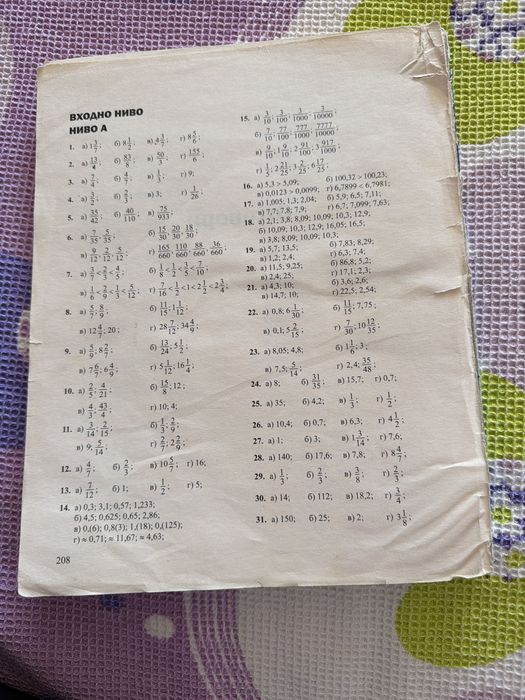 ВХОДНО НИВО
НИВО А
1. а) 1 3/7; б) 8 1/2; в) 4 3/7; г) 8 5/6;
2. а) 13/4; б) 83/8; в) 50/3; г) 155/6;
3. а) 7/4; б) 4/7; в) 1/3; г) 9;
4. а) 3/2; б) 2/3; в) 3; г) 1/20;
5. а) 35/42; б) 40/110; в) 75/933;
6. а) 7/35; 5/35; б) 15/30; 20/30; 18/30;
в) 9/12; 2/12; 5/12; г) 165/660; 110/660; 88/660; 36/660;
7. а) 3/7<2/3<4/5; б) 1/8<1/2<3/5<7/10;
в) 1/6<2/9<1/3<5/12; г) 7/16<1/2<1<2 1/2<2 3/4;
8. а) 5/7; 8/9; б) 11/15; 1 1/12;
в) 12 4/7; 20; г) 28 7/12; 34 4/9;
9. а) 5/9; 8 2/7; б) 13/24; 5 1/2;
в) 7 6/7; 6 4/9; г) 5 1/12; 16 1/4;
10. а) 2/5; 4/21; б) 15/8; 12;
в) 4/3; 43/4; г) 10; 4;
11. а) 3/14; 2/15; б) 1/3; 2/9;
в) 9; 5/14; г) 2/7; 2 2/9;
12. а) 4/7; б) 2/5; в) 10 5/7; г) 16;
13. а) 7/12; б) 1; в) 1/2; г) 5;
14. а) 0,3; 3,1; 0,57; 1,233;
б) 4,5; 0,625; 0,65; 2,86;
в) 0,(6); 0,8(3); 1,(18); 0,(125);
г) ≈ 0,71; ≈ 11,67; ≈ 4,63;
208
15. а) 3/10; 3/100; 3/1000; 3/10000;
б) 7/10; 77/100; 777/1000; 7777/10000;
в) 9/10; 1 9/10; 2 91/100; 3 917/1000;
г) 1/2; 2 21/25; 3 2/25; 6 17/25;
16. а) 5,3 > 5,09; б) 100,32 > 100,23;
в) 0,0123 > 0,0099; г) 6,7899 < 6,7981;
17. а) 1,005; 1,3; 2,04; б) 5,9; 6,5; 7,11;
в) 7,7; 7,8; 7,9; г) 6,7; 7,099; 7,63;
18. а) 2,1; 3,8; 8,09; 10,09; 10,3; 12,9;
б) 10,09; 10,3; 12,9; 16,05; 16,5;
в) 3,8; 8,09; 10,09; 10,3;
19. а) 5,7; 13,5; б) 7,83; 8,29;
в) 1,2; 2,4; г) 6,3; 7,4;
20. а) 11,5; 9,25; б) 86,8; 5,2;
в) 2,4; 25; г) 17,1; 2,3;
21. а) 4,3; 10; б) 3,6; 2,6;
в) 14,7; 10; г) 22,5; 2,54;
22. а) 0,8; 6 1/30; б) 11/15; 7,75;
в) 0,1; 5 2/15; г) 7/30; 10 12/35;
23. а) 8,05; 4,8; б) 1 1/6; 3;
в) 7,5; 3/14; г) 2,4; 35/48;
24. а) 8; б) 31/35; в) 15,7; г) 0,7;
25. а) 35; б) 4,2; в) 1/3; г) 1/2;
26. а) 10,4; б) 0,7; в) 6,3; г) 4 1/2;
27. а) 1; б) 3; в) 1 3/14; г) 7,6;
28. а) 140; б) 17,6; в) 7,8; г) 8 4/7;
29. а) 1/3; б) 2/3; в) 3/8; г) 2/3;
30. а) 14; б) 112; в) 18,2; г) 3/4;
31. а) 150; б) 25; в) 2; г) 3 1/8;